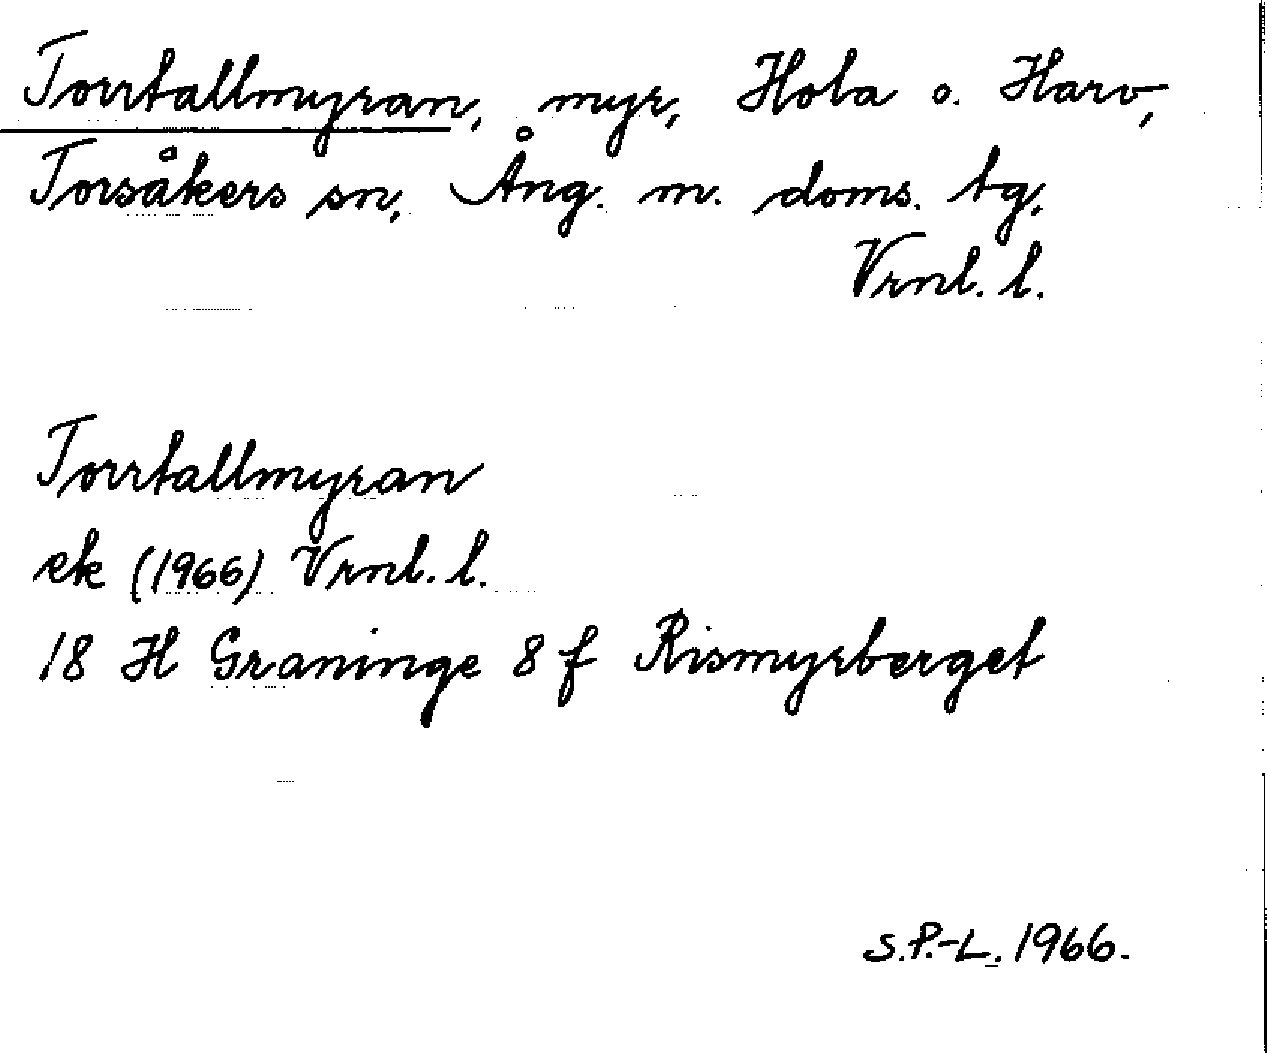 Torrtallmyran, myr, Hola o. Harv,
Torsåkers sn, Ång. m. doms. tg.
Vrnl. l.
Torrtallmyran
ek (1966) Vrnl. l.
18 H Graninge 8 f Rismyrberget
S.P.-L. 1966.